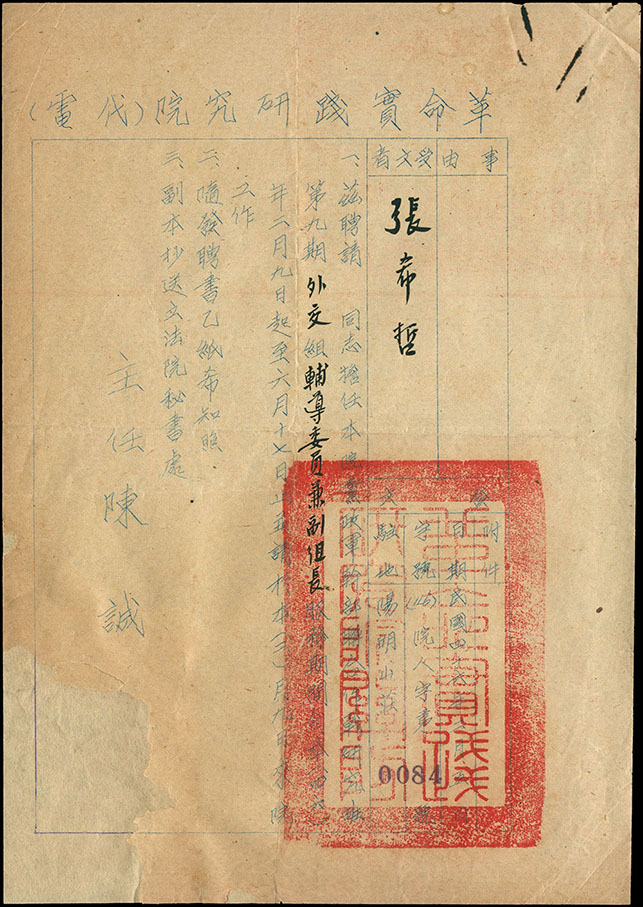 革命實踐研究院(代電)
事由
受文者
張希哲
附件
日期民國四十六年二月
字號(46)院人字第0084號
駐地陽明山莊
一、茲聘請 同志擔任本院黨政軍幹部聯合作戰研究班
第九期外交組輔導委員兼副組長服務期間自本(四六)
年二月九日起至六月十七日止並請於本(二)月九日來院
工作
二、隨發聘書乙紙希知照
三、副本抄送立法院秘書處
主任陳誠